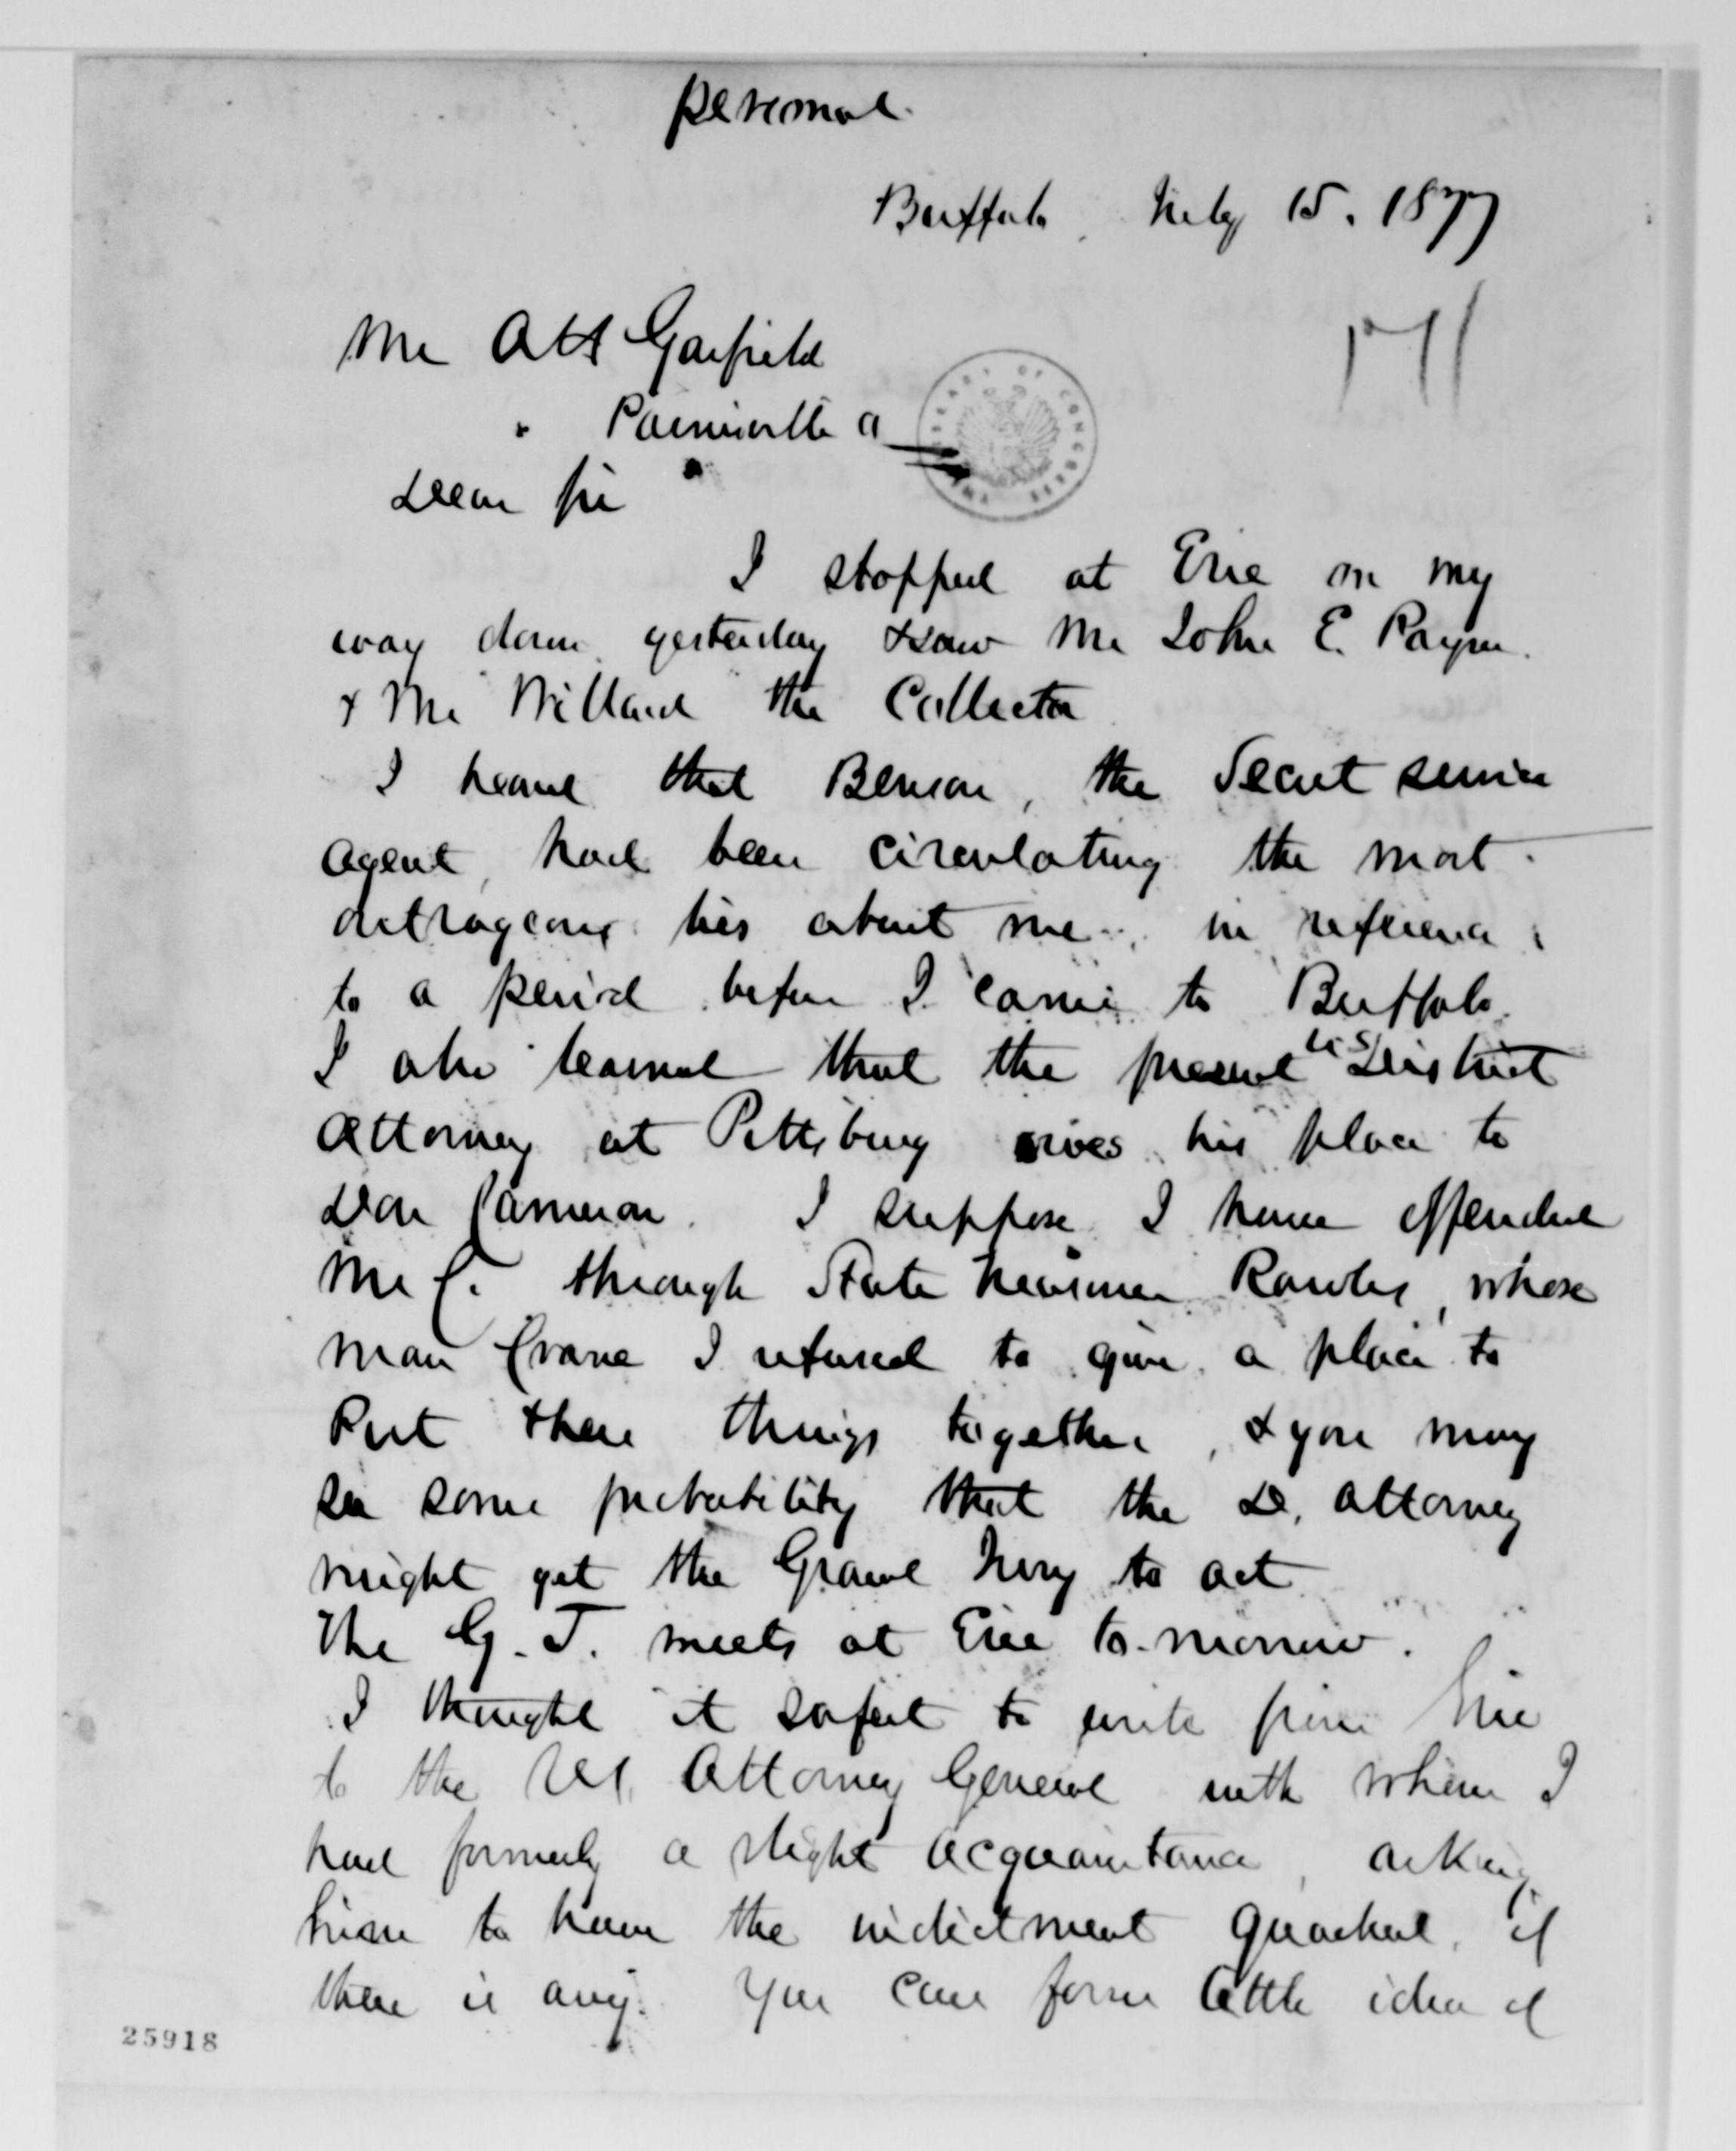 personal.
Buffalo, July 15. 1877
Mr Garfield
Dear Sir
I stopped at Erie on my
way down yesterday & saw Mr John E. Payne.
& Mr Willard the Collector
I heard that Benson, the Secret service
agent, had been circulating the most
outrageous lies about me in reference
to a period before I came to Buffalo.
I also learned that the present US District
Attorney at Pittsburg owes his place to
Don Cameron. I suppose I have offended
Mr C. through State Treasurer Rawles, whose
man Crane I refused to give a place to
Put these things together, & you may
see some probability that the D. Attorney
might get the Grand Jury to act
The G. J. meets at Erie to-morrow.
I thought it safest to write from Erie
to the US. Attorney General with whom I
had formerly a slight acquaintance, asking
him to have the indictment quashed, if
there is any. You can form little idea of
25918